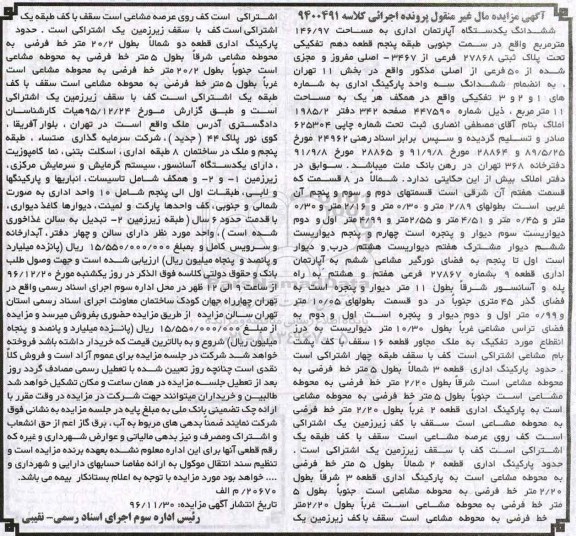 آگهی مزایده مال غیر منقول پرونده اجرائی کلاسه ۹۴۰۰۴۹۱
ششدانگ یکدستگاه آپارتمان اداری به مساحت ۱۴۶/۹۷
مترمربع واقع در سمت جنوبی طبقه پنجم قطعه دهم تفکیکی
تحت پلاک ثبتی ۲۷۸۶۸ فرعی از ۳۴۶۷- اصلی مفروز و مجزی
شده از ۵۰ فرعی از اصلی مذکور واقع در بخش ۱۱ تهران
. به انضمام ششدانگ سه واحد پارکینگ اداری به شماره
های ۱ و ۲ و ۳ تفکیکی واقع در همکف هر یک به مساحت
۱۱ مترمربع ، ذیل شماره ۴۴۷۵۹۰ صفحه ۳۴۲ دفتر ۱۹۸۵/۲
املاک بنام آقای مصطفی انصاری ثبت تحت شماره چاپی ۶۲۵۳۰۴
صادر و تسلیم گردیده و سپس برابر اسناد رهنی ۲۴۹۶۲ مورخ
۸۹/۵/۲۵ و ۲۸۸۶۴ مورخ ۹۱/۹/۸ و ۲۸۸۶۵ مورخ ۹۱/۹/۸
دفترخانه ۳۶۸ تهران در رهن بانک ملت میباشد . سوابق در
دفتر املاک بیش از این حکایتی ندارد . شمالاً در ۸ قسمت که
قسمت هفتم آن شرقی است قسمتهای دوم و سوم و پنجم آن
غربی است بطولهای ۲/۸۹ متر و ۰/۳۰ متر و ۲/۱۶ متر و ۰/۳۰
متر و ۰/۴۵ متر و ۴/۵۱ متر و ۲/۵۵ متر و ۴/۹۹ متر اول و دوم
دیواریست سوم دیوار و پنجره است چهارم و پنجم دیواریست
ششم دیوار مشترک هفتم دیواریست هشتم درب و دیوار
است اول تا پنجم به فضای نورگیر مشاعی ششم به آپارتمان
اداری قطعه ۹ بشماره ۲۷۸۶۷ فرعی هفتم و هشتم به راه
پله و آسانسور شرقاً بطول ۱۱ متر دیوار و پنجره است به
فضای گذر ۴۵ متری جنوباً در دو قسمت بطولهای ۱۰/۰۵ متر
و ۰/۹۹ متر اول و دوم دیوار و پنجره است اول و دوم به
فضای تراس مشاعی غرباً بطول ۱۰/۳۰ متر دیواریست به درز
انقطاع مورد تفکیک به ملک مجاور قطعه ۱۶ سقف با کف پشت
بام مشاعی اشتراکی است کف با سقف طبقه چهار اشتراکی است
. حدود پارکینگ اداری قطعه ۳ شمالاً بطول ۵ متر خط فرضی به
محوطه مشاعی است شرقاً بطول ۲/۲۰ متر خط فرضی به محوطه
مشاعی است جنوباً بطول ۵ متر خط فرضی به محوطه مشاعی
است به پارکینگ اداری قطعه ۲ غرباً بطول ۲/۲۰ متر خط فرضی
به محوطه مشاعی است کف با سقف زیرزمین یک اشتراکی
است کف روی عرصه مشاعی است سقف با کف طبقه یک
اشتراکی است کف با سقف زیرزمین یک اشتراکی است .
حدود پارکینگ اداری قطعه ۲ شمالاً بطول ۵ متر خط
فرضی به محوطه مشاعی پارکینگ اداری قطعه ۳ شرقاً بطول
۲/۲۰ متر خط فرضی به محوطه مشاعی است جنوباً بطول ۵
متر خط فرضی به محوطه مشاعی است غرباً بطول ۲/۲۰ متر
خط فرضی به محوطه مشاعی است سقف با کف زیرزمین یک
اشتراکی است کف روی عرصه مشاعی است سقف با کف طبقه یک
اشتراکی است کف با سقف زیرزمین یک اشتراکی است . حدود
پارکینگ اداری قطعه دو شمالاً بطول ۲۰/۲ متر خط فرضی به
محوطه مشاعی شرقاً بطول ۵ متر خط فرضی به محوطه مشاعی
است جنوباً بطول ۲۰/۲ متر خط فرضی به محوطه مشاعی است
غرباً بطول ۵ متر خط فرضی به محوطه مشاعی است سقف با کف
طبقه یک اشتراکی است کف با سقف زیرزمین یک اشتراکی
است و طبق گزارش مورخ ۹۵/۱۲/۲۴ هیات کارشناسان
دادگستری آدرس ملک واقع است در تهران ، بلوار آفریقا ،
کوی نور پلاک ۴۴ ( جدید ) ، شرکت سرمایه گذاری صنتسا ، طبقه
پنجم و ملک در ساختمان ۸ طبقه اداری ، اسکلت بتنی ، نما کامپوزیت
، دارای یکدستگاه آسانسور ، سیستم گرمایش و سرمایش مرکزی ،
زیرزمین ۱- و ۲- و همکف شامل تاسیسات ، انباریها و پارکینگها
و لابی ، طبقات اول الی پنجم شامل ۱۰ واحد اداری به صورت
شمالی و جنوبی ، کف واحدها پارکت و لمینت ، دیوارها کاغذ دیواری ،
با قدمت حدود ۶ سال ( طبقه زیرزمین ۲- تبدیل به سالن غذاخوری
شده است ) ، واحد مورد نظر دارای سالن و چهار دفتر ، آبدارخانه
و سرویس کامل و بمبلغ ۱۵/۵۵۰/۰۰۰/۰۰۰ ریال (پانزده میلیارد
و پانصد و پنجاه میلیون ریال) ارزیابی شده است و جهت وصول طلب
بانک و حقوق دولتی کلاسه فوق الذکر در روز یکشنبه مورخ ۹۶/۱۲/۲۰
از ساعت ۹ الی ۱۲ ظهر در محل اداره سوم اجرای اسناد رسمی واقع در
تهران چهارراه جهان کودک ساختمان معاونت اجرای اسناد رسمی استان
تهران سالن مزایده از طریق مزایده حضوری بفروش میرسد و مزایده
از مبلغ ۱۵/۵۵۰/۰۰۰/۰۰۰ ریال (پانزده میلیارد و پانصد و پنجاه
میلیون ریال) شروع و به بالاترین قیمت که خریدار داشته باشد فروخته
خواهد شد شرکت در جلسه مزایده برای عموم آزاد است و فروش کلاً
نقدی است چنانچه روز تعیین شده با تعطیل رسمی مصادف گردد روز
بعد از تعطیل جلسه مزایده در همان ساعت و مکان تشکیل خواهد شد
طالبین و خریداران میتوانند جهت شرکت در مزایده در وقت مقرر با
ارائه چک تضمینی بانک ملی به مبلغ پایه در جلسه مزایده به نشانی فوق
شرکت نمایند ضمناً بدهی های مربوط به آب ، برق گاز اعم از حق انشعاب
و اشتراک ومصرف و نیز بدهی مالیاتی و عوارض شهرداری و غیره که
رقم قطعی آنها برای این اداره معلوم نشده بعهده برنده مزایده است و
تنظیم سند انتقال موکول به ارائه مفاصا حسابهای دارایی و شهرداری و
.... خواهد بود مورد مزایده با توجه به اعلام بستانکار بیمه می باشد.
۲۰۶۷۰/ م الف
تاریخ انتشار آگهی مزایده: ۹۶/۱۱/۳۰
رئیس اداره سوم اجرای اسناد رسمی- نقیبی